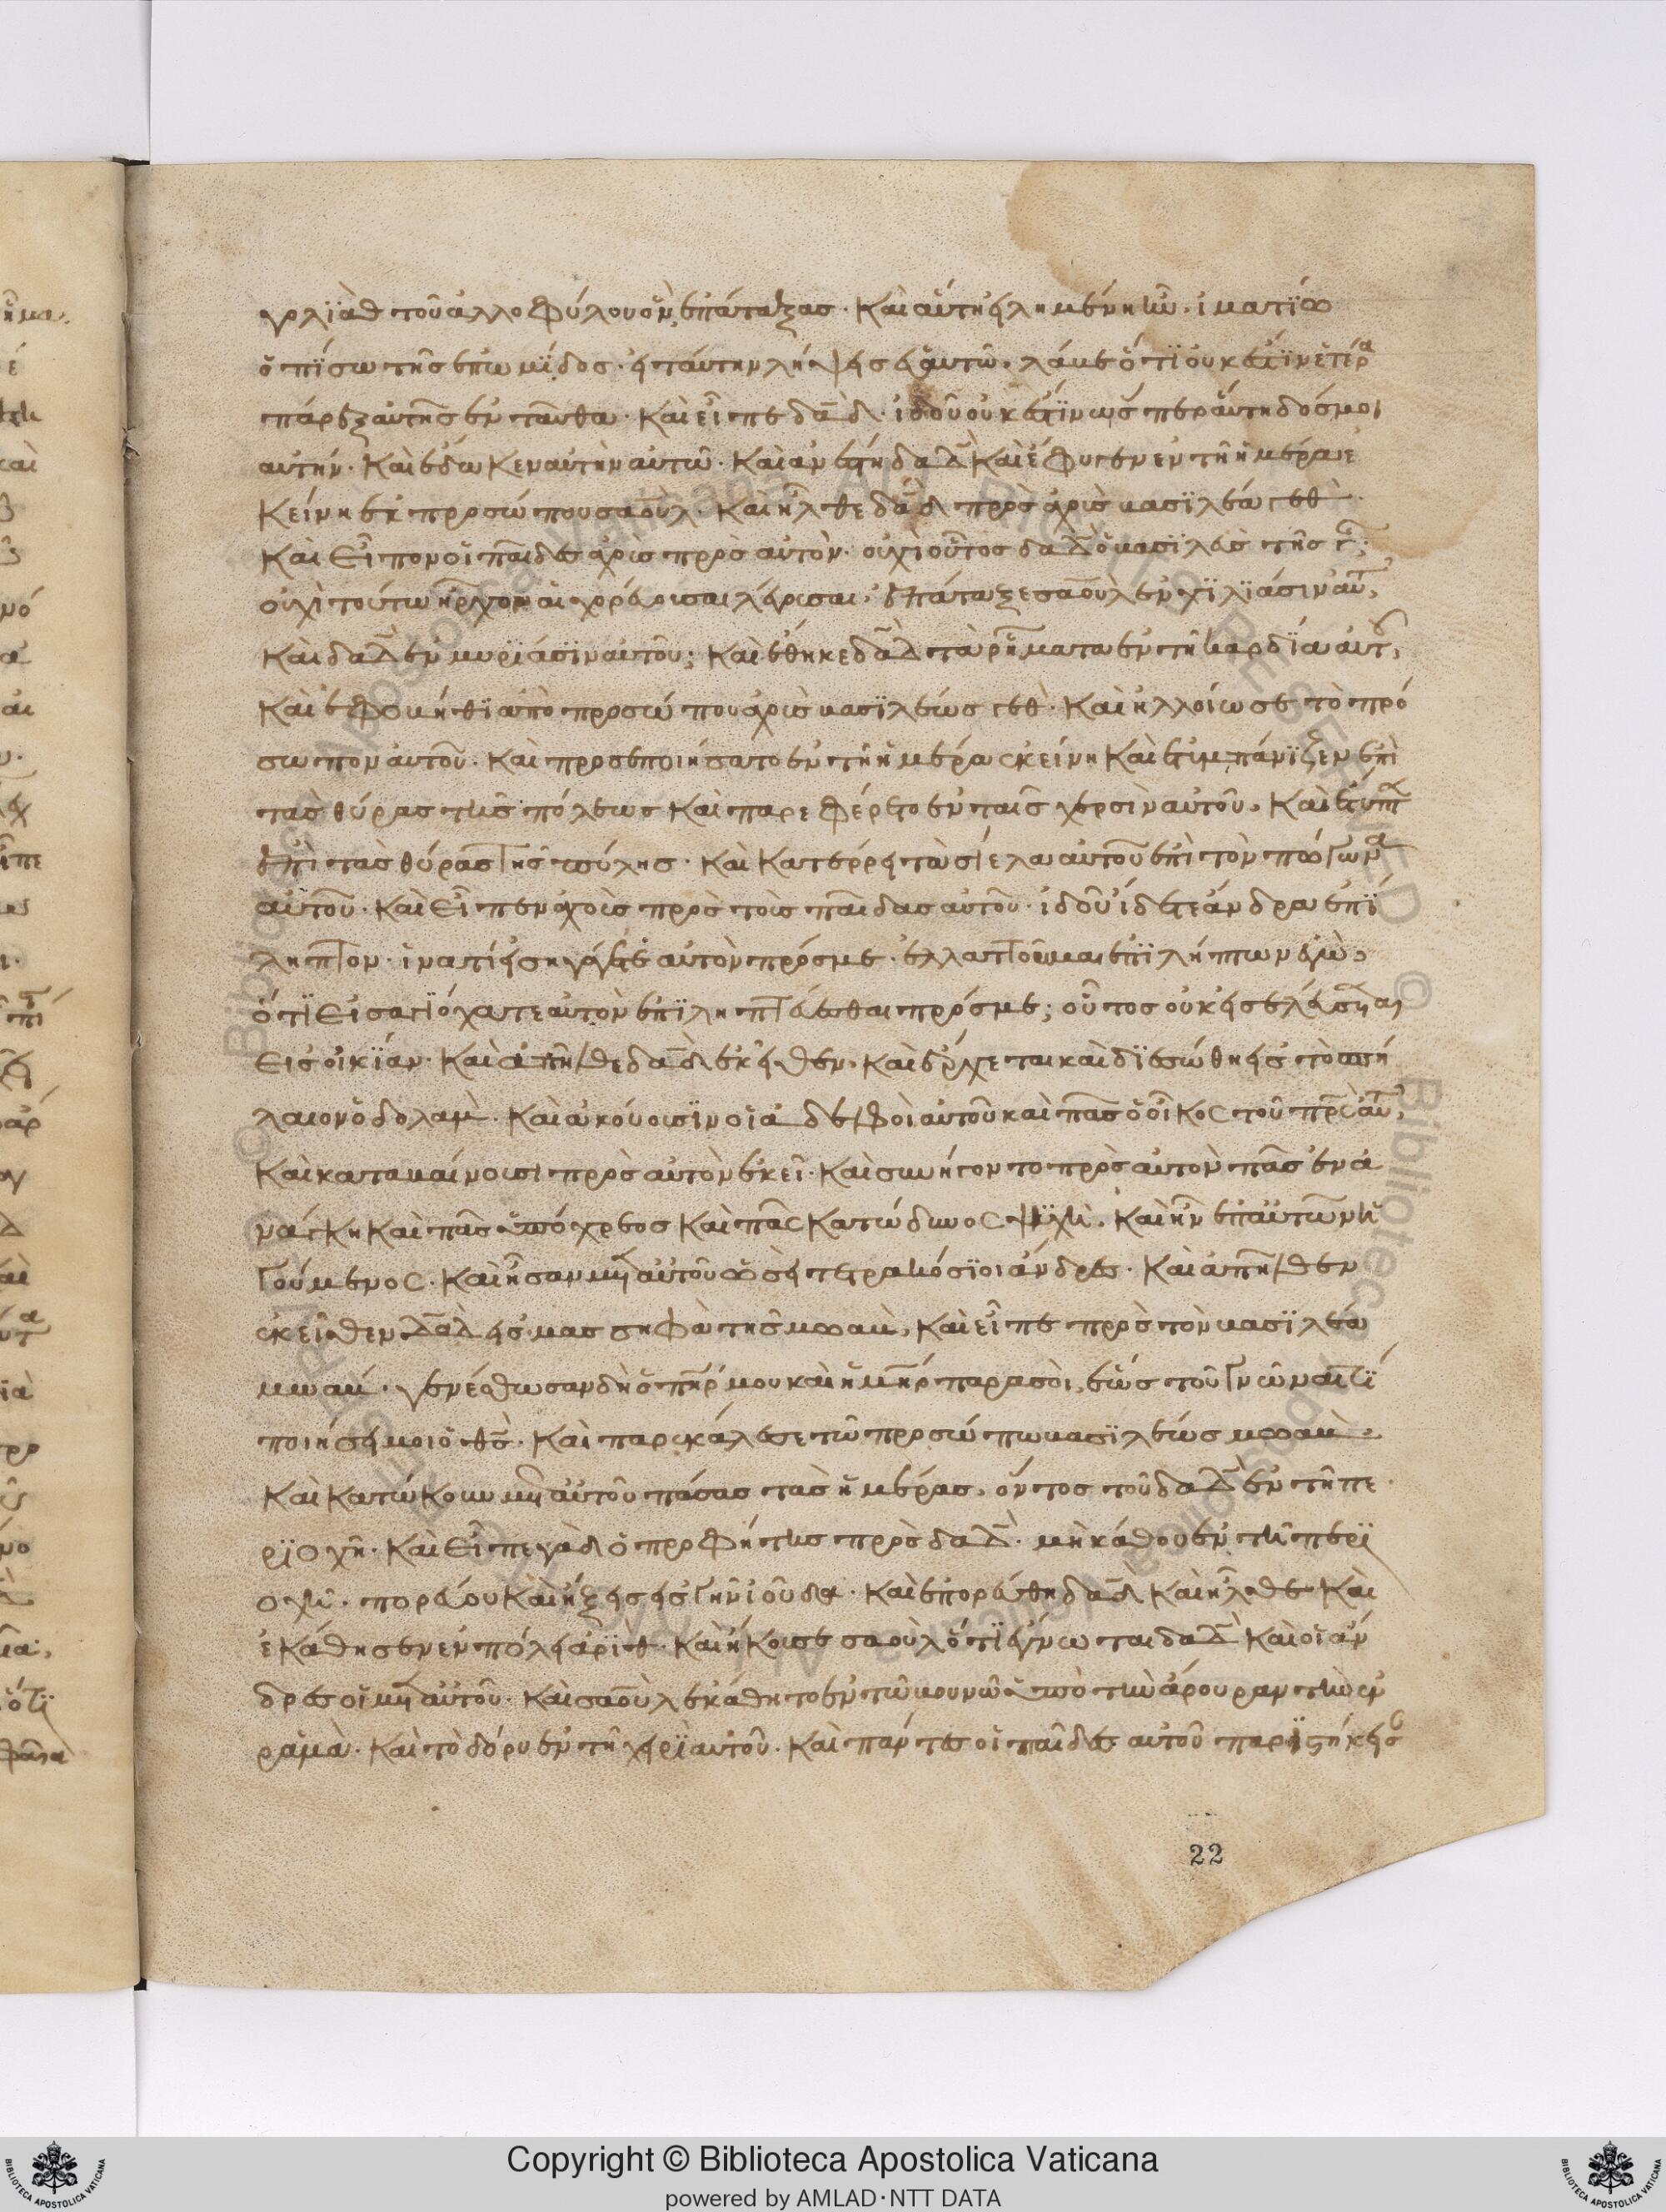 γολϊὰθ τοῦ ἀλλοφύλου ὃν ἐπάταξας· καὶ αὐτὴ εἰλημένη ἦν ἱματίω
ὀπίσω τῆς ἐπωμίδος· εἰ ταύτην λήψει σεαυτῶ, λάμβε ὅτι οὐκ ἔστιν ἑτέρα
πάρεξ αὐτῆς ἐνταῦθα· καὶ εἶπε δαδ· ἰδοῦ οὐκ ἔστιν ὥσπερ αὐτὴ δός μοι
αὐτήν· καὶ ἔδωκεν αὐτὴν αὐτῶ· καὶ ἀνέστη δαδ καὶ ἔφυγεν ἐν τῆ ἡμέρα ἐ
κείνη ἐκ προσώπου σαοὺλ· καὶ ἦλθε δαδ πρὸς ἀγχοῦς βασιλέα γεθ·
καὶ εἶπον οἱ παῖδες ἀγχοῦς πρὸς αὐτὸν· οὐχὶ οὗτος δαδ ὁ βασιλεὺς τῆς γῆς;
οὐχὶ τούτω ἦρχον αἱ χορεύουσαι λέγουσαι, ἐπάταξε σαοὺλ ἐν χιλιάσιν αὐτ,
καὶ δαδ ἐν μυριάσιν αὐτοῦ; καὶ ἔθηκε δαδ τὰ ρήματα ἐν τῆ καρδία αὐτοῦ,
καὶ ἐφοβήθη ἀπὸ προσώπου ἀγχοῦς βασιλέως γεθ· καὶ ἠλλοίωσε τὸ πρό
σωπον αὐτοῦ· καὶ προσεποιήσατο ἐν τῆ ἡμέρα ἐκείνη καὶ ἐτυμπάνιζεν ἐπὶ
τὰς θύρας τῆς πόλεως καὶ παρεφέρετο ἐν ταῖς χερσὶν αὐτοῦ, καὶ ἔπιπτ
ἐπὶ τὰς θύρας τῆς πύλης· καὶ κατέρρει τὰ σίελα αὐτοῦ ἐπὶ τὸν πώγωνα
αὐτοῦ· καὶ εἶπεν ἀγχοῦς πρὸς τοὺς παῖδας αὐτοῦ· ἰδοῦ ἴδετε ἄνδρα ἐπί
ληπτον· ἱνατί εἰσηγάγετε αὐτὸν πρός με· ἐλλαττοῦμαι ἐπιλήπτων ἐγὼ,
ὅτι εἰσαγιόχατε αὐτὸν ἐπιληπτεύεσθαι πρός με; οὗτος οὐκ εἰσελεύσεται
εἰς οἰκίαν· καὶ ἀπῆλθε δαδ ἐκεῖθεν, καὶ ἔρχεται καὶ διεσώθη εἰς τὸ σπή
λαιον ὀδολαμ· καὶ ἀκούουσιν οἱ ἀδελφοὶ αὐτοῦ καὶ πᾶς ὁ οἶκος τοῦ πρς αὐτ,
καὶ καταβαίνουσι πρὸς αὐτὸν ἐκεῖ· καὶ συνήγοντο πρὸς αὐτὸν πᾶς ἐν ἀ
νάγκη καὶ πᾶς ὑπόχρεος καὶ πᾶς κατώδυνος ψυχῆ, καὶ ἦν ἐπ' αὐτῶν ἡ
γούμενος· καὶ ἦσαν μετ αὐτοῦ ὡσεὶ τετρακόσιοι ἄνδρες· καὶ ἀπῆλθεν
ἐκεῖθεν δαδ εἰς μασσηφὰ τῆς μωαβ, καὶ εἶπε πρὸς τὸν βασιλέα
μωαβ· γενέσθωσαν δὴ ὁ πηρ μου καὶ ἡ μηρ παρὰ σοὶ, ἕως τοῦ γνῶναι τί
ποιήσει μοι ὁ θς· καὶ παρεκάλεσε τῶ προσώπω βασιλέως μωαβ·
καὶ κατώκουν μετ αὐτοῦ πάσας τὰς ἡμέρας, ὄντος τοῦ δαδ ἐν τῆ πε
ριοχῆ· καὶ εἶπε γὰδ ὁ προφήτης πρὸς δαδ· μὴ κάθου ἐν τῆ περι
οχῆ· πορεύου καὶ ἥξεις εἰς γῆν ἰούδα· καὶ ἐπορεύθη δαδ καὶ ἦλθε καὶ
ἐκάθησεν ἐν πόλει ἀρίθ· καὶ ἤκουσε σαοὺλ ὅτι ἔγνωσται δαδ καὶ οἱ ἄν
δρες οἱ μετ αὐτοῦ· καὶ σαοὺλ ἐκάθητο ἐν τῶ βουνῶ ὑπὸ τὴν ἄρουραν τὴν ἐν
ραμὰ· καὶ τὸ δόρυ ἐν τῆ χειρὶ αὐτοῦ· καὶ πάντες οἱ παῖδες αὐτοῦ παρειστήκεισ
22
Copyright © Biblioteca Apostolica Vaticana
powered by AMLAD·NTT DATA